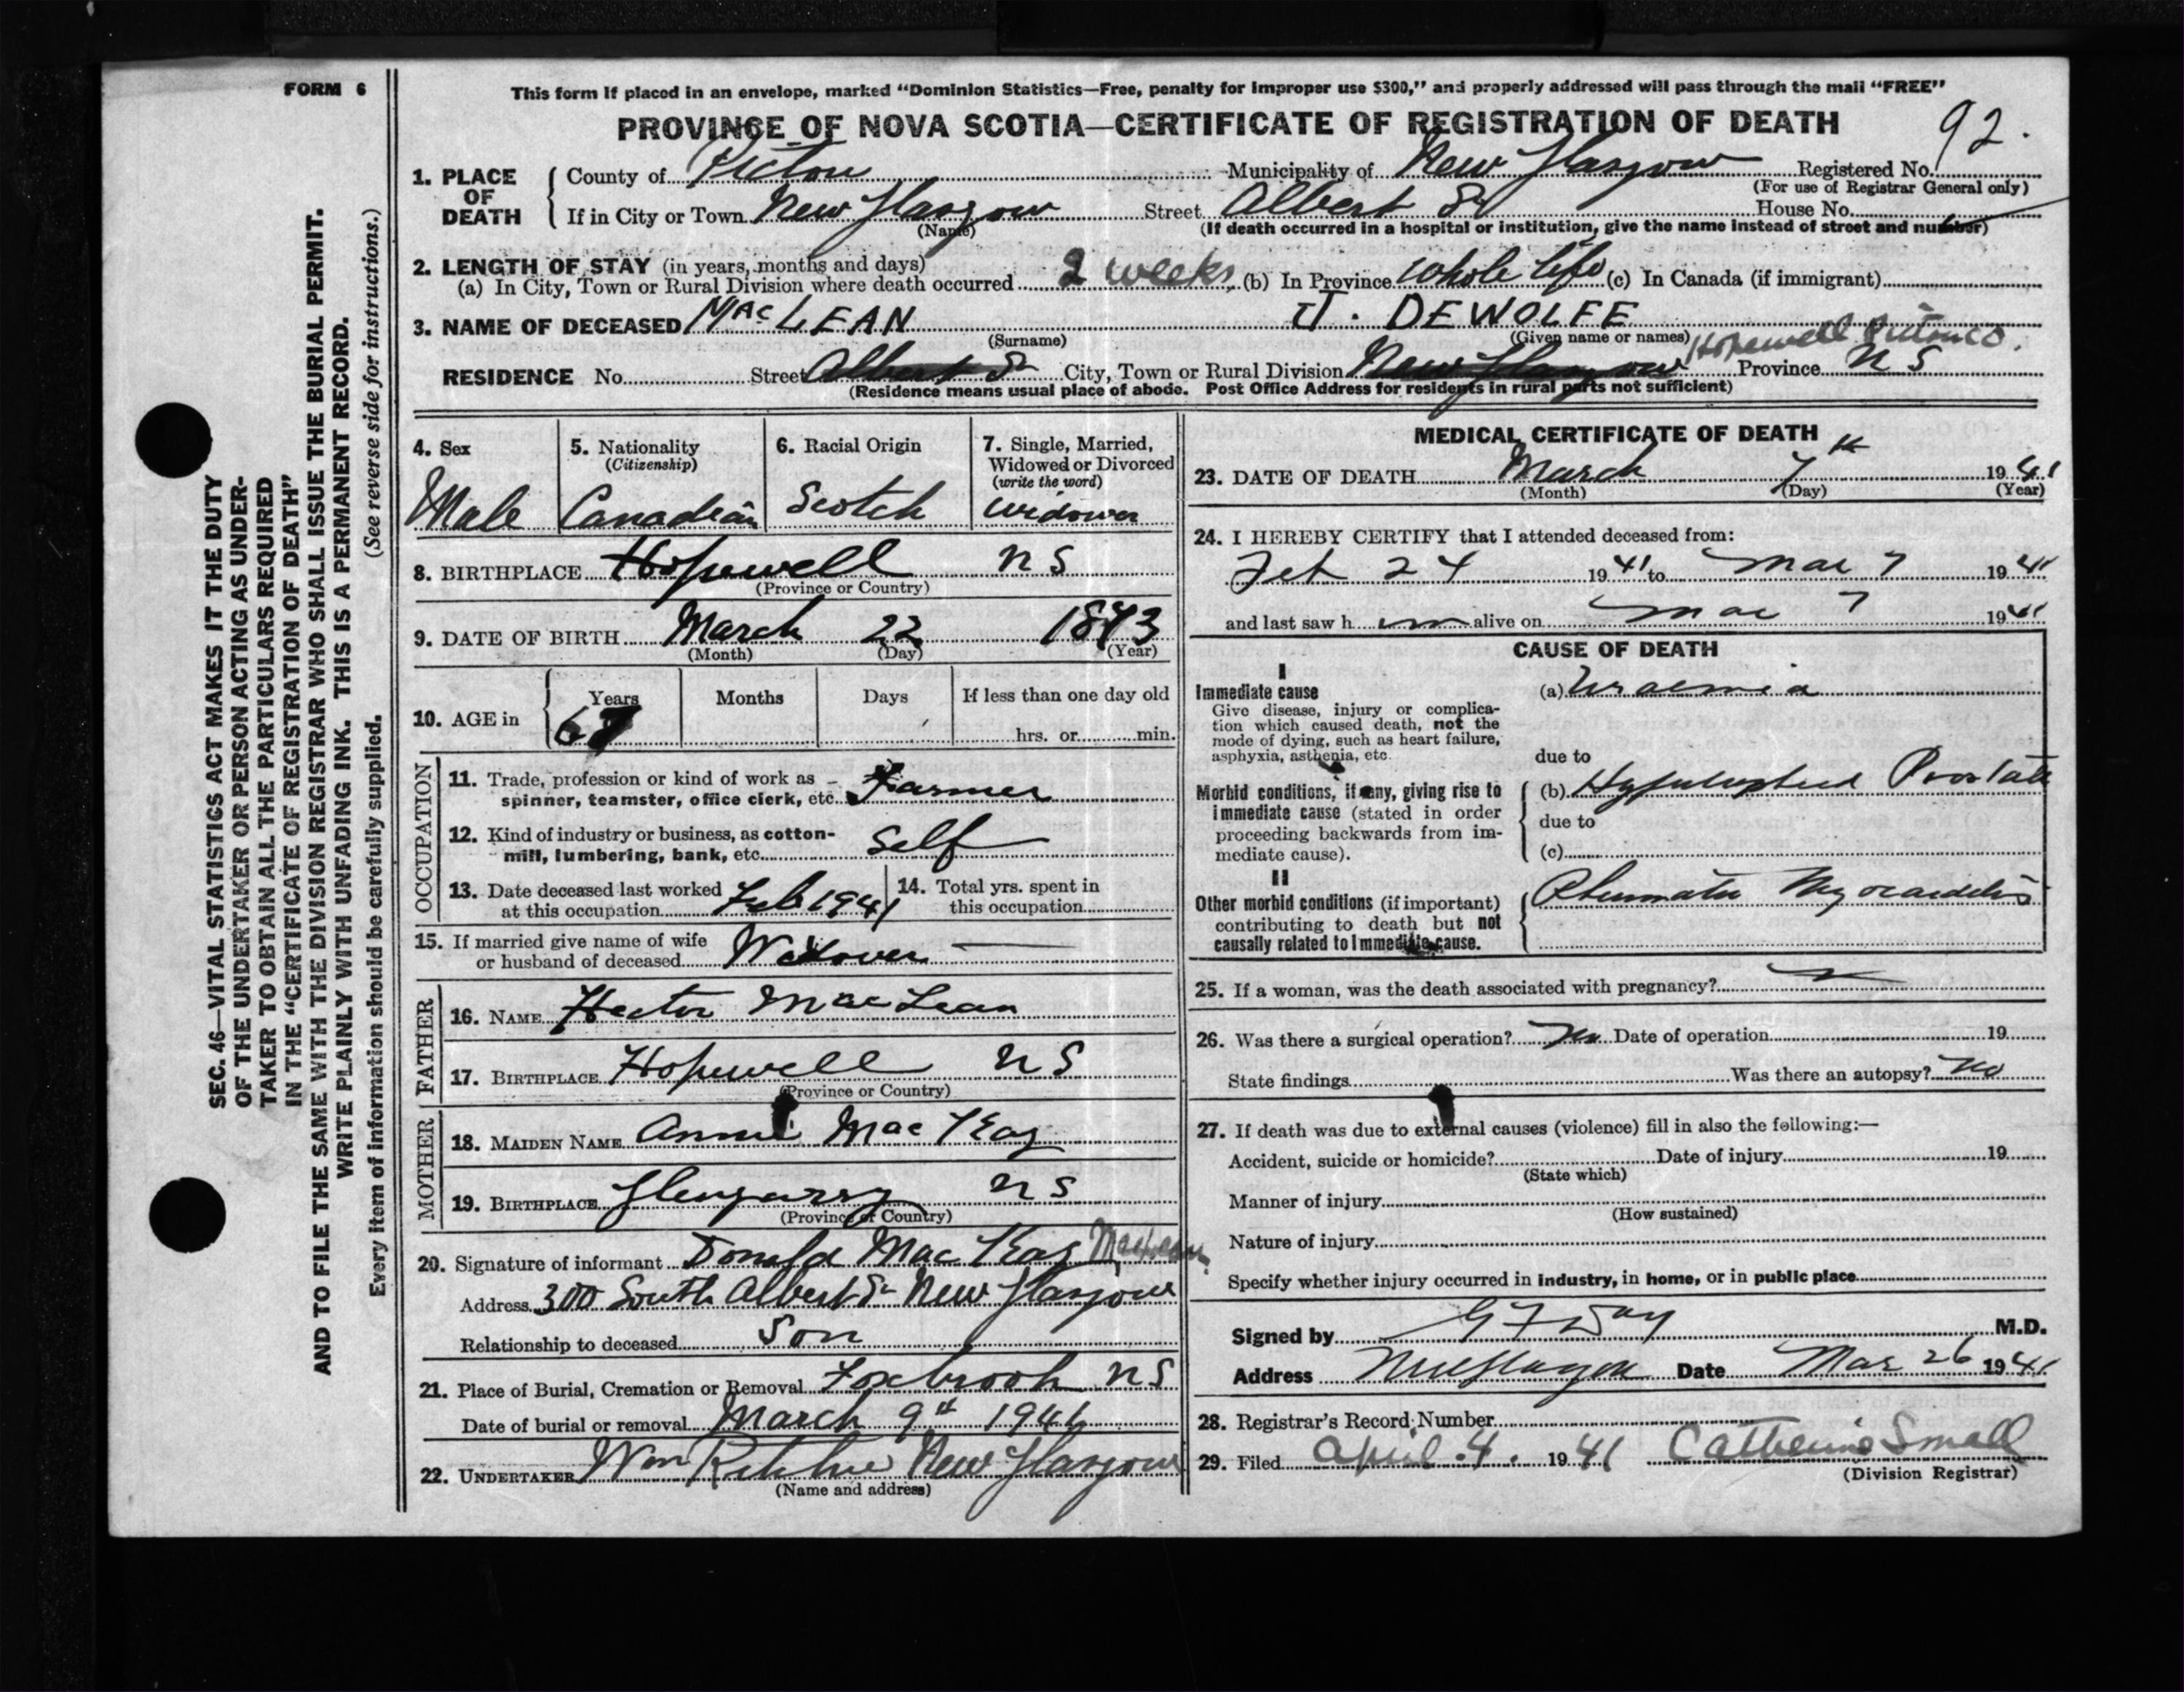 FORM 6
This form if placed in an envelope, marked “Dominion Statistics—Free, penalty for improper use $300,” and properly addressed will pass through the mail “FREE”
PROVINCE OF NOVA SCOTIA—CERTIFICATE OF REGISTRATION OF DEATH
92.
1. PLACE OF DEATH { County of Pictou Municipality of New Glasgow Registered No.
(For use of Registrar General only)
If in City or Town New Glasgow Street Albert St House No.
(Name) (If death occurred in a hospital or institution, give the name instead of street and number)
2. LENGTH OF STAY (in years, months and days)
(a) In City, Town or Rural Division where death occurred 2 weeks (b) In Province Whole life (c) In Canada (if immigrant)
3. NAME OF DECEASED MacLEAN J. DEWOLFE
(Surname) (Given name or names) Hopewell Pictou Co.
RESIDENCE No. Street Albert St City, Town or Rural Division New Glasgow Province N S
(Residence means usual place of abode. Post Office Address for residents in rural parts not sufficient)
4. Sex
Male
5. Nationality
(Citizenship)
Canadian
6. Racial Origin
Scotch
7. Single, Married,
Widowed or Divorced
(write the word)
Widower
8. BIRTHPLACE Hopewell N S
(Province or Country)
9. DATE OF BIRTH March 22 1873
(Month) (Day) (Year)
10. AGE in { Years Months Days If less than one day old
67 hrs. or min.
OCCUPATION
11. Trade, profession or kind of work as
spinner, teamster, office clerk, etc. Farmer
12. Kind of industry or business, as cotton-
mill, lumbering, bank, etc. Self
13. Date deceased last worked
at this occupation Feb 1941
14. Total yrs. spent in
this occupation
15. If married give name of wife
or husband of deceased Widower
FATHER
16. NAME Hector MacLean
17. BIRTHPLACE Hopewell N S
(Province or Country)
MOTHER
18. MAIDEN NAME Annie MacKay
19. BIRTHPLACE Glengarry N S
(Province or Country)
20. Signature of informant Donald MacKay MacLean
Address 300 South Albert St New Glasgow
Relationship to deceased Son
21. Place of Burial, Cremation or Removal Foxbrook N S
Date of burial or removal March 9th 1941
22. UNDERTAKER Wm Ritchie New Glasgow
(Name and address)
MEDICAL CERTIFICATE OF DEATH
23. DATE OF DEATH March 7th 1941
(Month) (Day) (Year)
24. I HEREBY CERTIFY that I attended deceased from:
Feb 24 1941 to Mar 7 1941
and last saw h im alive on Mar 7 1941
CAUSE OF DEATH
I
Immediate cause
Give disease, injury or complica-
tion which caused death, not the
mode of dying, such as heart failure,
asphyxia, asthenia, etc.
(a) Uraemia
due to
Morbid conditions, if any, giving rise to
immediate cause (stated in order
proceeding backwards from im-
mediate cause).
(b) Prostate
due to
(c)
II
Other morbid conditions (if important)
contributing to death but not
causally related to immediate cause.
Rheumatic Myocarditis
25. If a woman, was the death associated with pregnancy?
26. Was there a surgical operation? No Date of operation 19
State findings Was there an autopsy? No
27. If death was due to external causes (violence) fill in also the following:—
Accident, suicide or homicide? Date of injury 19
(State which)
Manner of injury
(How sustained)
Nature of injury
Specify whether injury occurred in industry, in home, or in public place
Signed by G F Day M.D.
Address New Glasgow Date Mar 26 1941
28. Registrar's Record Number
29. Filed April 4. 1941 Catherine Small
(Division Registrar)
SEC. 46—VITAL STATISTICS ACT MAKES IT THE DUTY
OF THE UNDERTAKER OR PERSON ACTING AS UNDER-
TAKER TO OBTAIN ALL THE PARTICULARS REQUIRED
IN THE “CERTIFICATE OF REGISTRATION OF DEATH”
AND TO FILE THE SAME WITH THE DIVISION REGISTRAR WHO SHALL ISSUE THE BURIAL PERMIT.
WRITE PLAINLY WITH UNFADING INK. THIS IS A PERMANENT RECORD.
Every item of information should be carefully supplied. (See reverse side for instructions.)